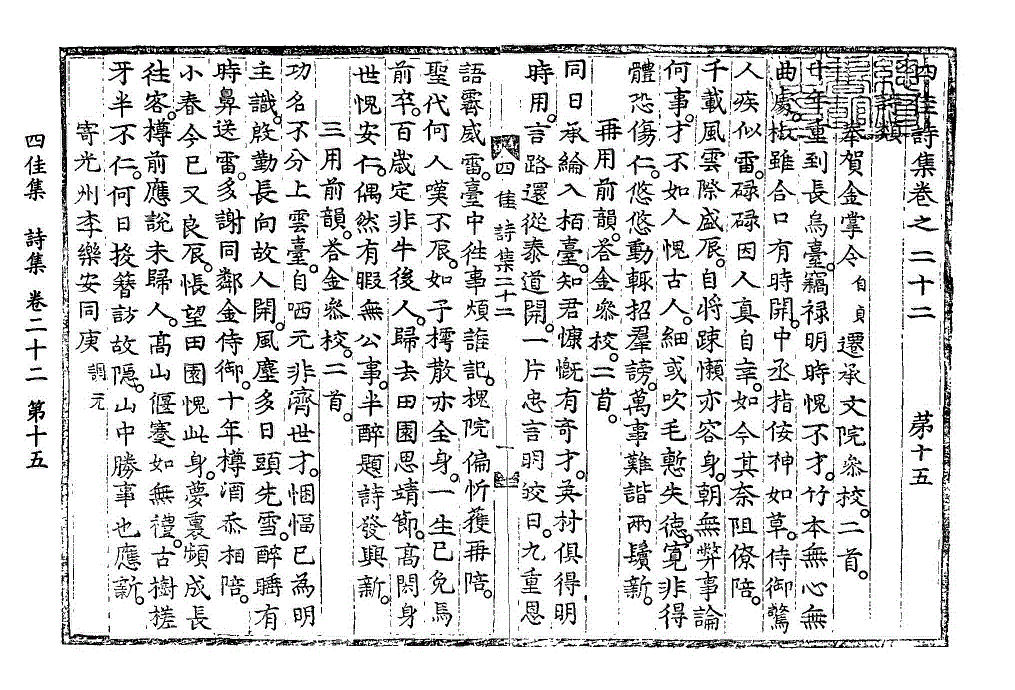 四佳詩集卷之二十二　第十五
詩類
奉賀金掌令自貞還承文院參校。二首。
廿年重到長烏臺。竊祿明時愧不才。竹本無心無
曲處。椒雖合口有時開。中丞指佞神如草。侍御驚
人疾似雷。碌碌因人眞自幸。如今其奈阻僚陪。
千載風雲際盛辰。自將疎懶亦容身。朝無弊事論
何事。才不如人愧古人。細或吹毛慙失德。寬非得
體恐傷仁。悠悠動輒招羣謗。萬事難諧兩鬢新。
再用前韻。答金參校。二首。
同日承綸入栢臺。知君慷慨有奇才。英材俱得明
時用。言路還從泰道開。一片忠言明皎日。九重恩
四佳詩集二十二　一
語霽威雷。臺中徃事煩誰記。槐院偏忻獲再陪。
聖代何人嘆不辰。如子樗散亦全身。一生已免馬
前卒。百歲定非牛後人。歸去田園思靖節。高閑身
世愧安仁。偶然有暇無公事。半醉題詩發興新。
三用前韻。答金參校。二首。
功名不分上雲臺。自哂元非濟世才。悃愊已爲明
主識。慇勤長向故人開。風塵多日頭先雪。醉睡有
時鼻送雷。多謝同鄰金侍御。十年樽酒忝相陪。
小春今已又良辰。悵望田園愧此身。夢裏頻成長
徃客。樽前應說未歸人。高山偃蹇如無禮。古樹槎
牙半不仁。何日投簪訪故隱。山中勝事也應新。
寄光州李樂安同庚調元
四佳集　詩集　卷二十二　第十五